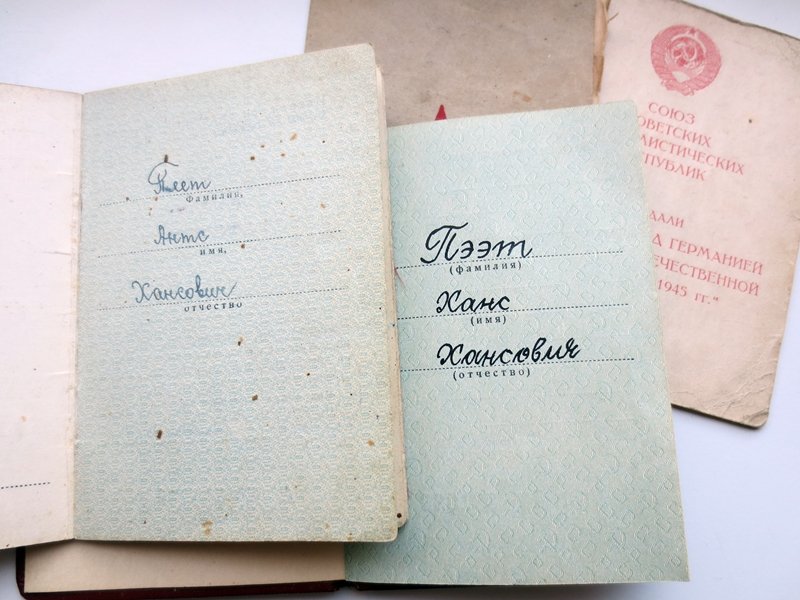 Пеет
Фамилия,
Антс
имя,
Хансович
отчество
Пээт
(фамилия)
Ханс
(имя)
Хансович
(отчество)
СОЮЗ
ОВЕТСКИХ
АЛИСТИЧЕСКИХ
ПУБЛИК
ДАЛИ
Д ГЕРМАНИЕЙ
ЕЧЕСТВЕННОЙ
1945 ГГ."